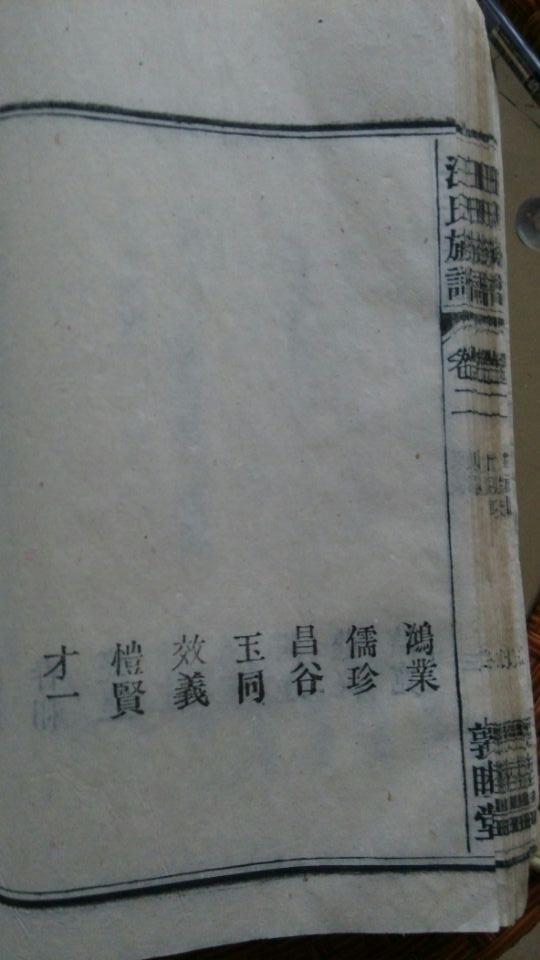 汪氏族譜
卷二
敦睦堂
鴻業
儒珍
昌谷
玉同
效義
愷賢
才一